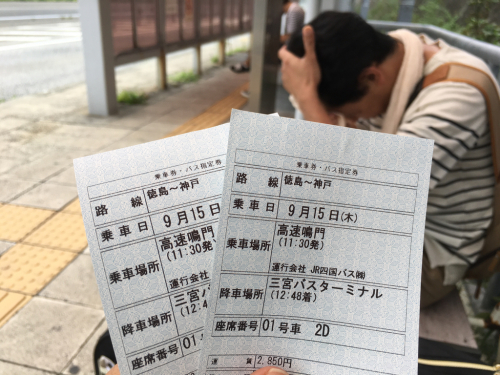 乗車券・バス指定券
路線 徳島〜神戸
乗車日 9月15
乗車場所 高速鳴門
(11:30発)
運行会社 JR
降車場所 三宮バス
(12:4
座席番号 01号
運賃
乗車券・バス指定券
路線 徳島〜神戸
乗車日 9月15日(木)
乗車場所 高速鳴門
(11:30発)
運行会社 JR四国バス㈱
降車場所 三宮バスターミナル
(12:48着)
座席番号 01号車 2D
運賃 2,850円